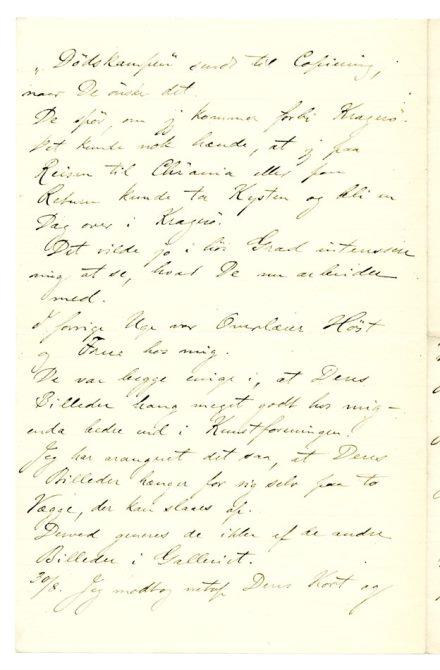 „Dödskampen" sendt til Copiering,
naar De önsker det.
De spör, om jeg kommer forbi Kragerö.
Det kunde nok hænde, at jeg paa
Reisen til Chr:ania eller paa
Return kunde ta Kysten og bli en
Dag over i Kragerö.
Det vilde jo i höi Grad interessere
mig at se, hvad De nu arbeider
med.
I forrige Uge var Overlærer Höst
og Frue hos mig.
De var begge enige i, at Deres
Billeder hang meget godt hos mig –
enda bedre end i Kunstforeningen.
Jeg har arangeret det saa, at Deres
Billeder hænger for sig selv paa to
Vægge, der kan slaaes op.
Derved generes de ikke af de andre
Billeder i Galleriet.
30/8. Jeg modtog netop Deres Kort og